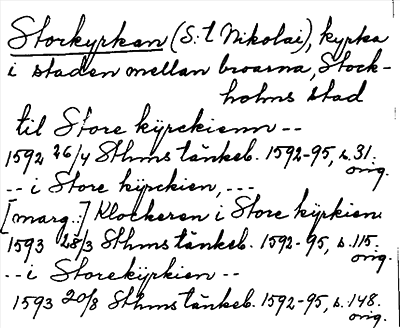 Storkyrkan (S:t Nikolai), kyrka
i staden mellan broarna, Stock-
holms stad
til Store kyrckienn --
1592 26/4 Sthms tänkeb. 1592-95, s. 31.
orig.
-- i Store kyrckien, ---
[marg.:] Klockeren i Store kyrkien.
1593 28/3 Sthms tänkeb. 1592-95, s. 115.
orig.
-- i Storekyrkien --
1593 20/8 Sthms tänkeb. 1592-95, s. 148.
orig.